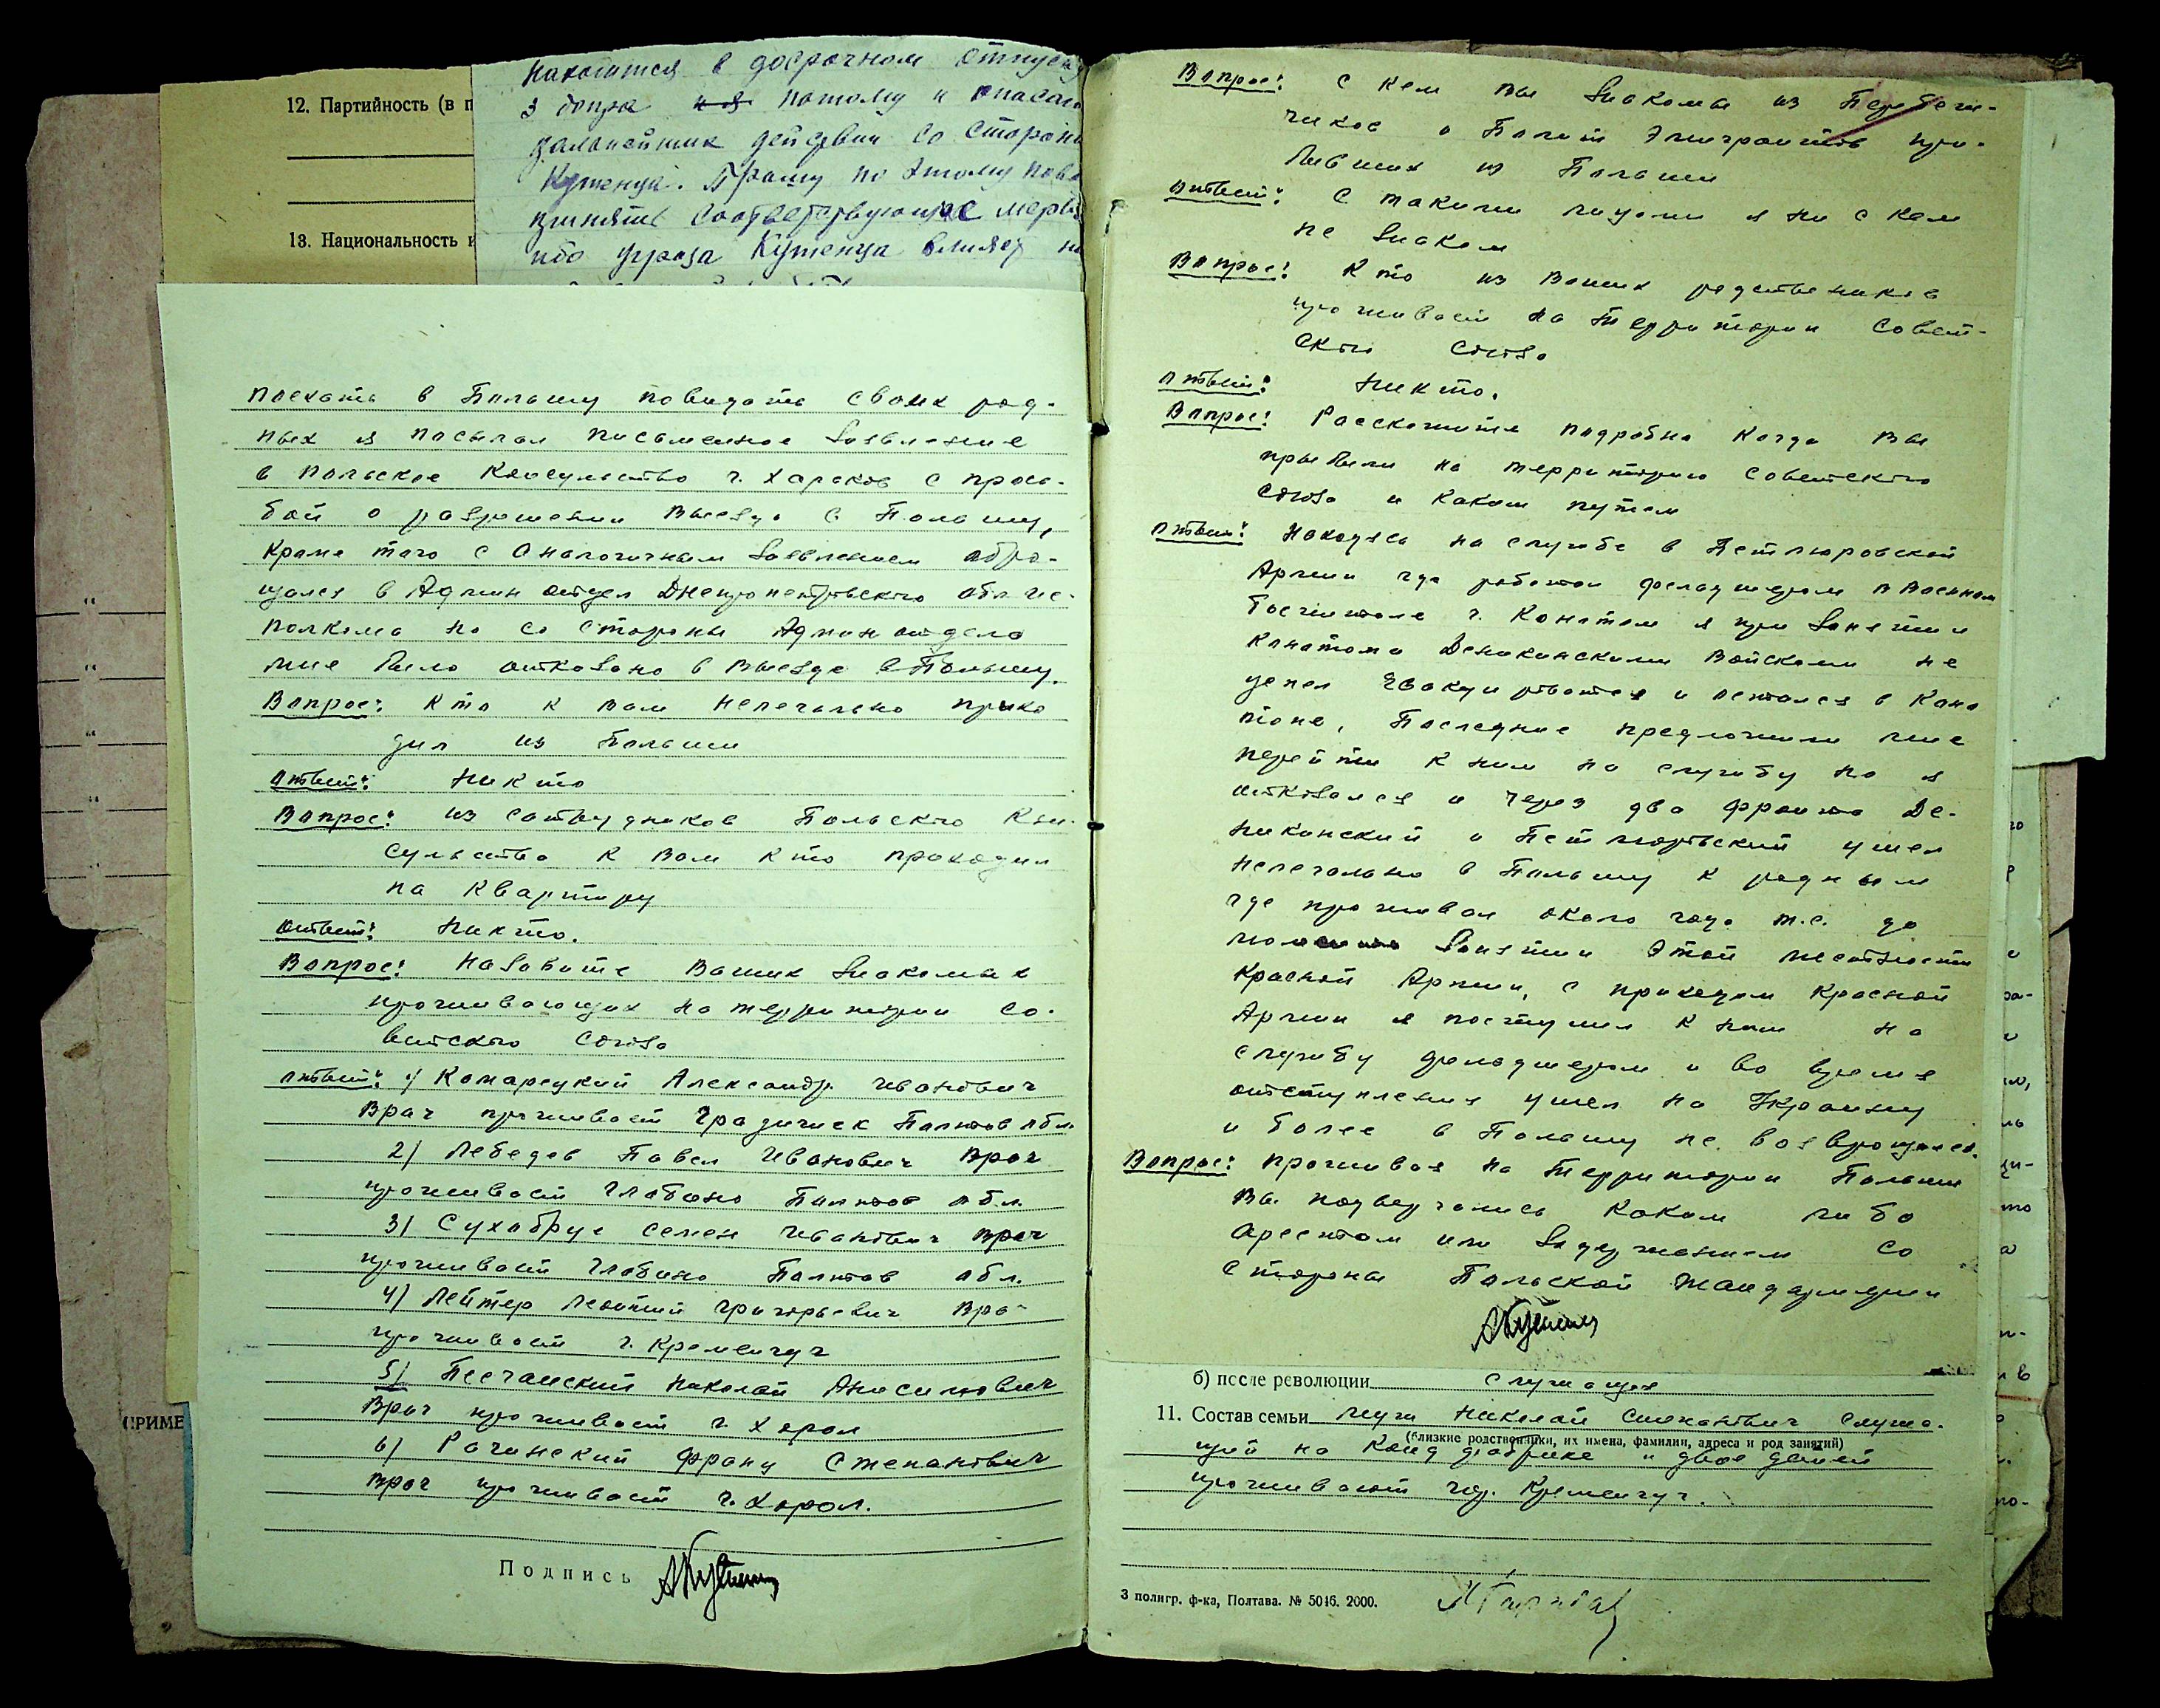 12. Партийность (в п
13. Национальность и
находится в досрочном отпуску
з допра потому и опасаю
дальнейших действий со стороны
Кутенца. Прошу по этому пов
принять соответствующие меры
ибо угроза Кутенца влияет на
поехать в Польшу повидать своих род-
ных я посылал письменное заявление
в польское консульство г. Харьков с прось-
бой о разрешении выезда в Польшу,
кроме того с аналогичным заявлением обра-
щался в Админ отдел Днепропетровского облис-
полкома но со стороны Админ отдела
мне было отказано в выезде в Польшу.
Вопрос: Кто к вам нелегально прихо
дил из Польши
Ответ: Никто
Вопрос: из сотрудников Польского Кон-
сульства к вам кто проходил
на квартиру
Ответ: Никто.
Вопрос: Назовите ваших знакомых
проживающих на территории Со-
ветского Союза
Ответ: 1) Комарецкий Александр Иванович
Врач проживает Градижск Полтав обл.
2) Лебедев Павел Иванович Врач
проживает Глобино Полтав обл.
3) Сухобрус Семен Иванович врач
проживает Глобино Полтав обл.
4) Лейтер Леонтий Григорьевич Вра-
проживает г. Кременчуг
5) Песчанский Николай Анисимович
Врач проживает г. Хорол
6) Рачинский Франц Степанович
Врач проживает г. Хорол.
Подпись
ПРИМЕ
Вопрос: С кем вы знакомы из Перебеж-
чиков и Полит Эмигрантов при-
бывших из Польши
Ответ: С такими лицами я ни с кем
не знаком
Вопрос: Кто из ваших родственников
проживает на территории Совет-
ского Союза
Ответ: Никто.
Вопрос: Расскажите подробно когда вы
прибыли на территорию Советского
Союза и каким путем
Ответ: Находясь на службе в Петлюровской
Армии где работал фельдшером в Военном
Госпитале г. Конотоп я при занятии
Конотопа Деникинскими Войсками не
успел эвакуироваться и остался в Коно
топе, Последние предложили мне
перейти к ним на службу но я
отказался и через два фронта Де-
никинский и Петлюровский ушел
нелегально в Польшу к родным
где проживал около года т.е. до
момента занятии этой местности
Красной Армии, с приходом Красной
Армии я поступил к ним на
службу фельдшером и во время
отступления ушел на Украину
и более в Польшу не возвращался.
Вопрос: Проживая на территории Польши
Вы подвергались каким либо
арестам или задержанием со
стороны Польской Жандармерии
б) после революции Служащая
11. Состав семьи муж Николай Степанович служа-
(близкие родственники, их имена, фамилии, адреса и род занятий)
щий на Конд фабрике и двое детей
проживают гор. Кременчуг.
3 полигр. ф-ка, Полтава. № 5046. 2000.